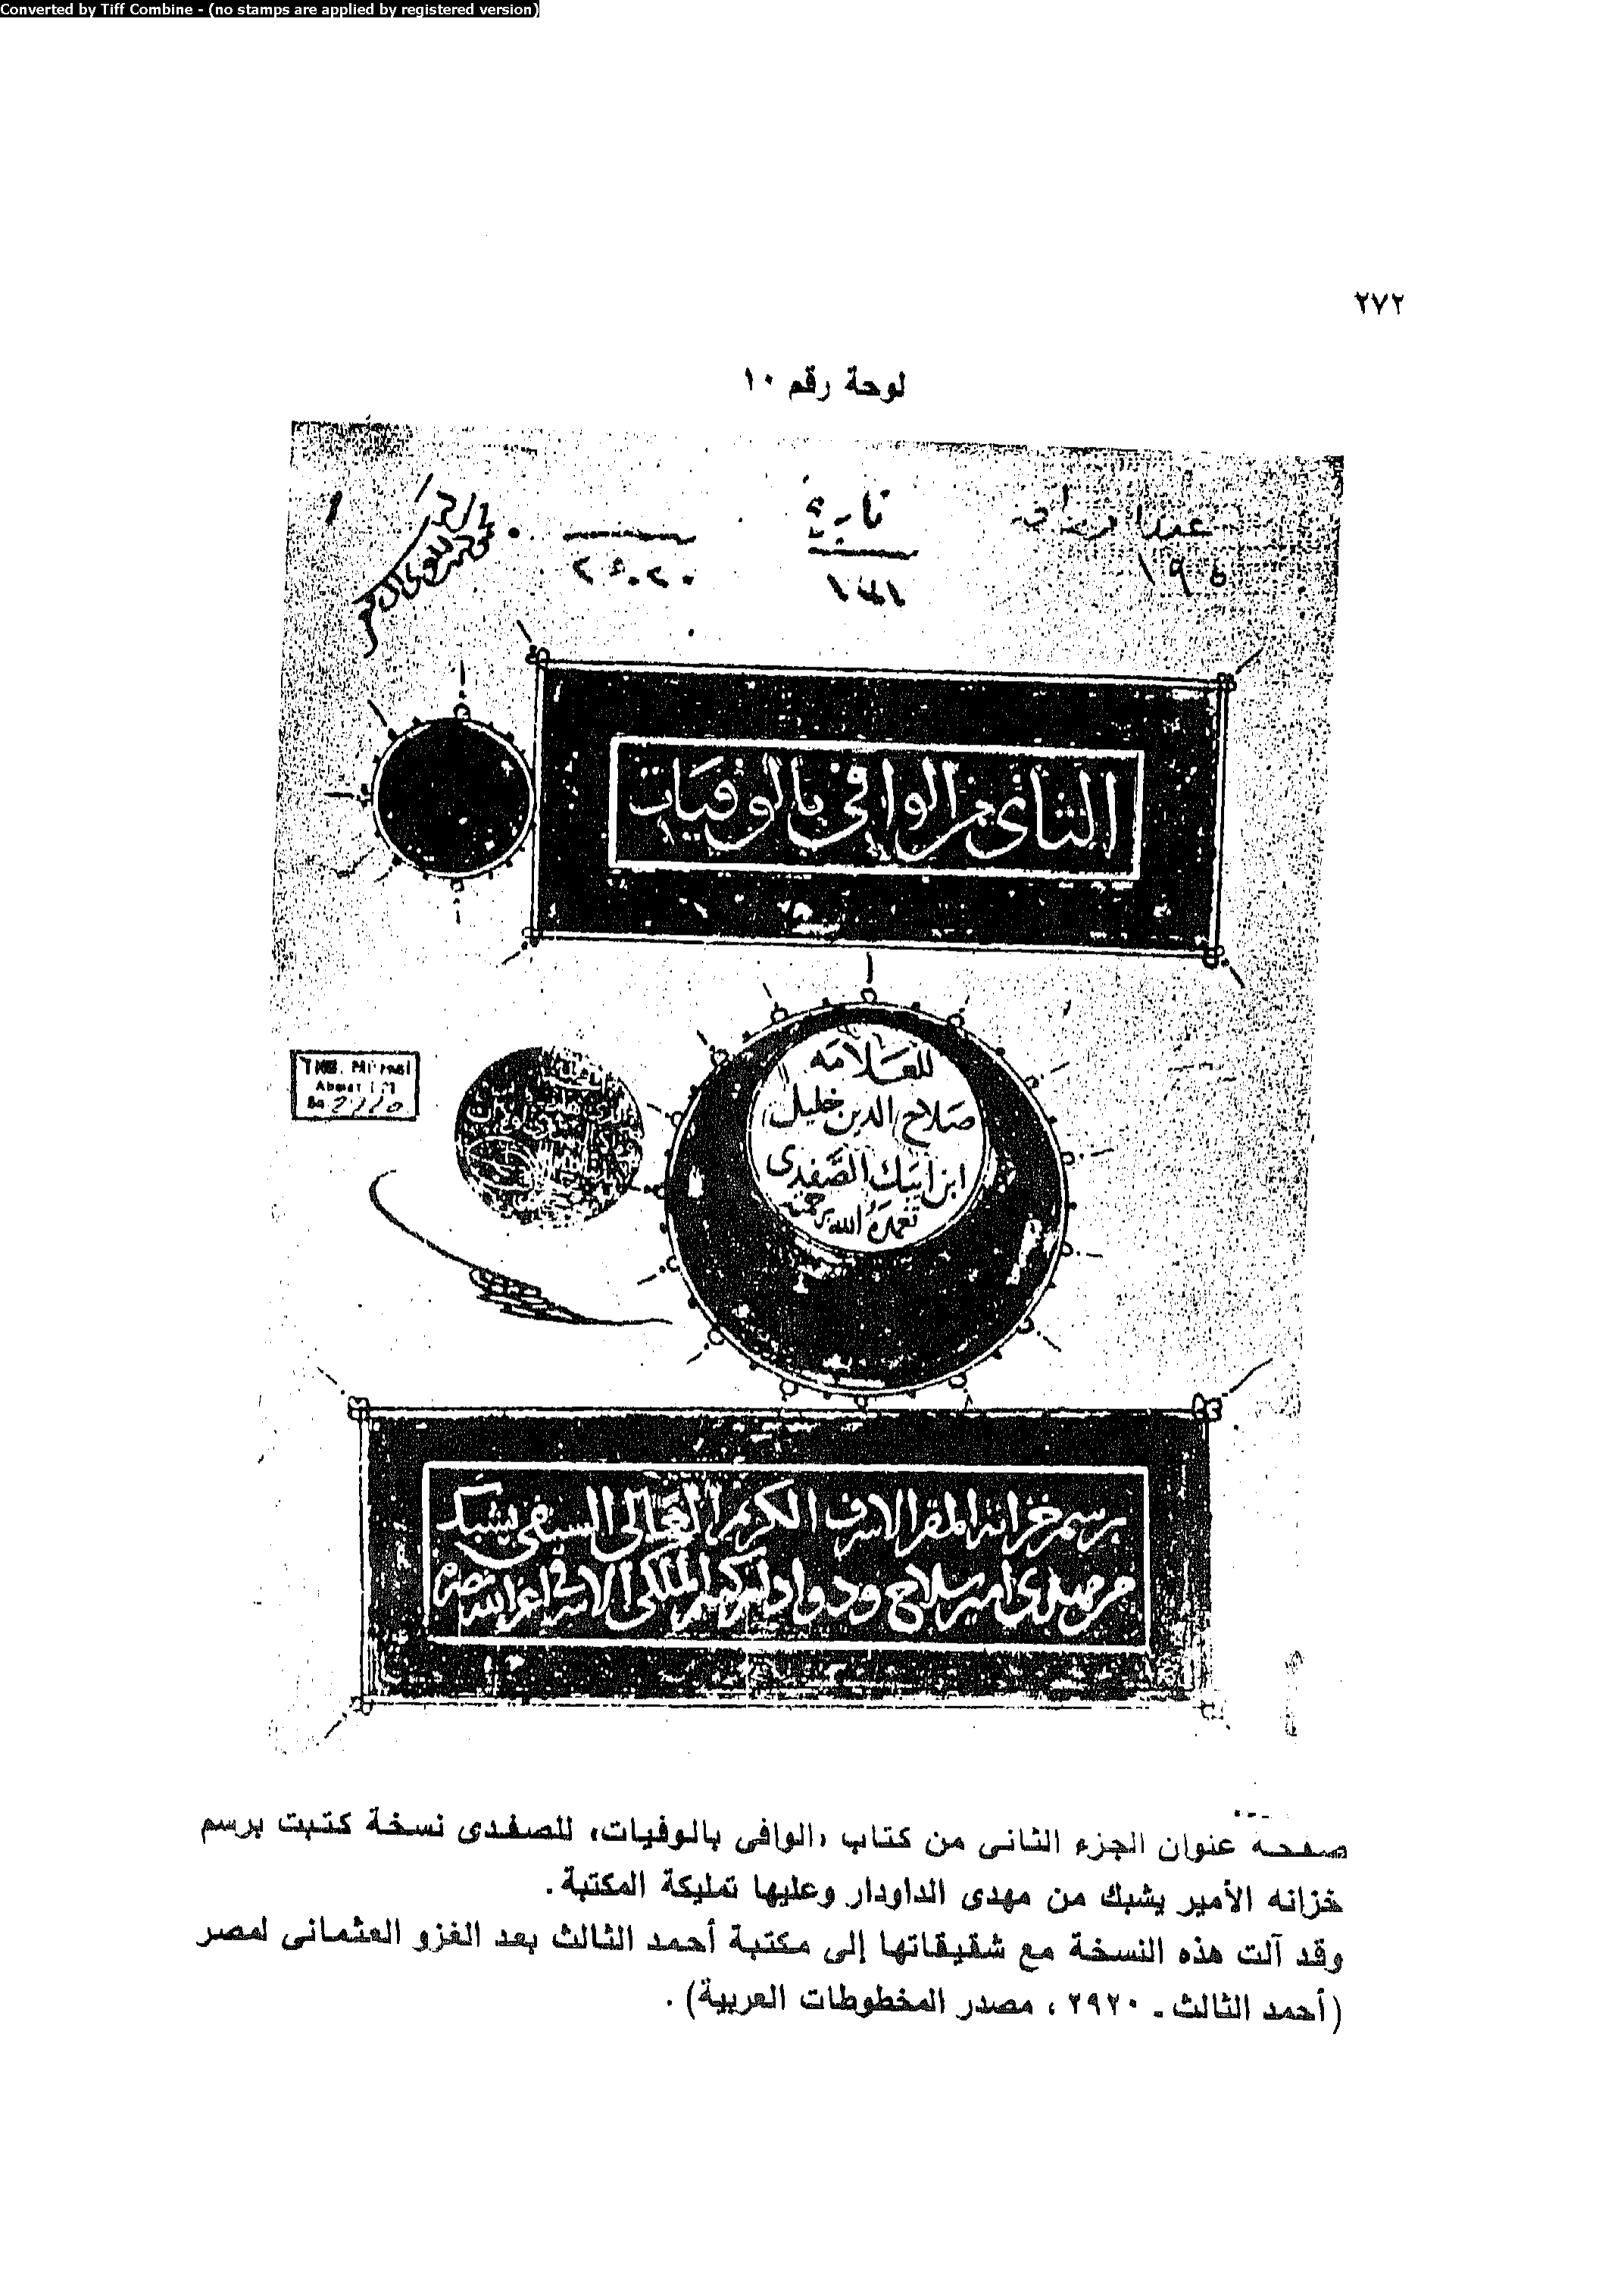 Converted by Tiff Combine - (no stamps are applied by registered version)
٢٧٢
لوحة رقم ١٠
تاريخ
الثانى من الوافي بالوفيات
للعلامة
صلاح الدين خليل
ابن ايبك الصفدى
تغمده الله برحمته
برسم خزانة المقر الاشرف الكريم العالى السيفى يشبك
من مهدى امير سلاح ودوادار كبير الملكى الاشرفى اعز الله نصره
صفحة عنوان الجزء الثانى من كتاب «الوافى بالوفيات» للصفدى نسخة كتبت برسم
خزانه الأمير يشبك من مهدى الداودار وعليها تمليكة المكتبة.
وقد آلت هذه النسخة مع شقيقاتها إلى مكتبة أحمد الثالث بعد الغزو العثمانى لمصر
(أحمد الثالث ـ ٢٩٢٠، مصدر المخطوطات العربية).